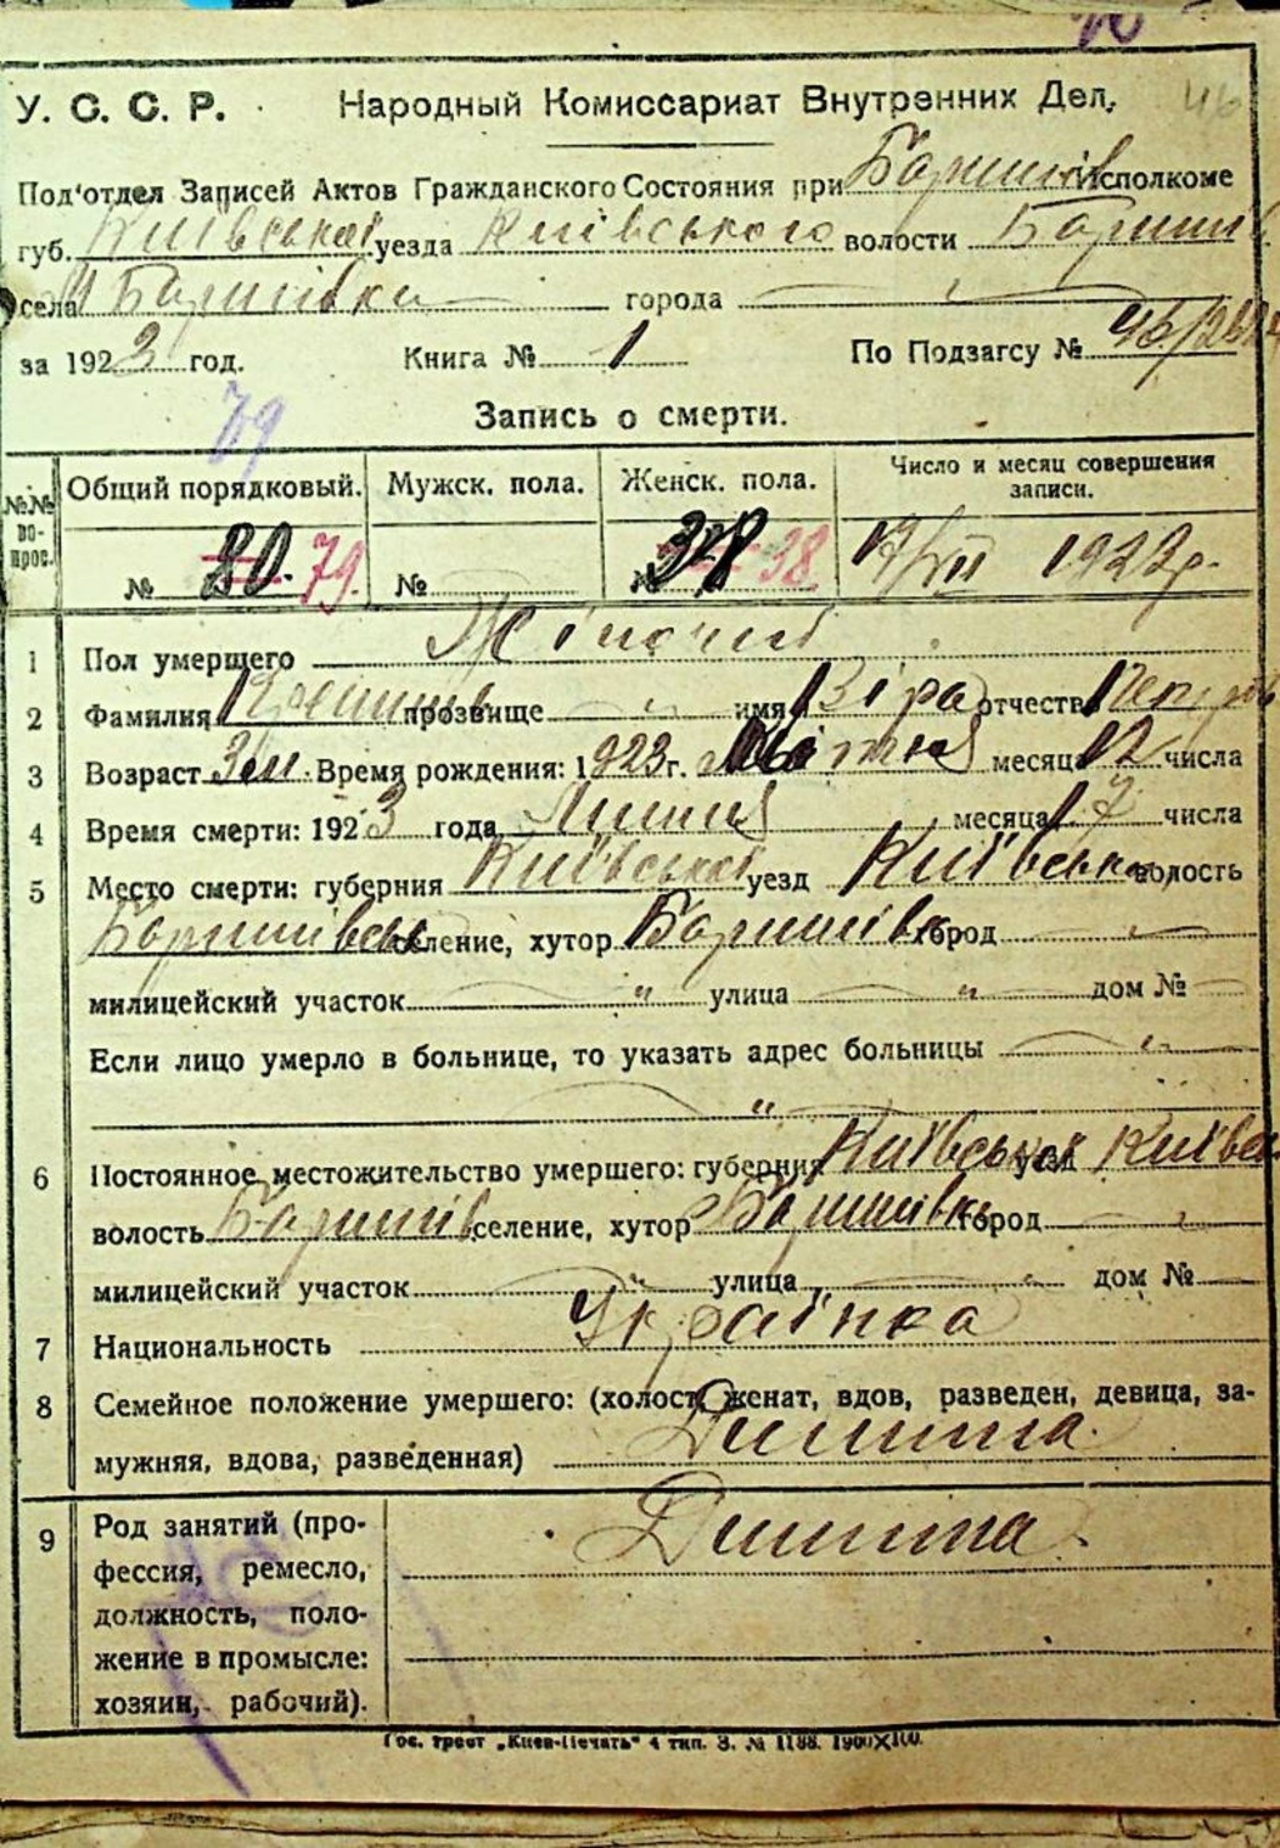 У. С. С. Р. Народный Комиссариат Внутренних Дел. 46
Под'отдел Записей Актов Гражданского Состояния при Баришів исполкоме
губ. Київської уезда Київського волости Баришів
села М Баришівки города
за 1923 год. Книга № 1 По Подзагсу №
79
Запись о смерти.
№№ вопрос. Общий порядковый. Мужск. пола. Женск. пола. Число и месяц совершения записи.
№ 80. 79. № № 38 38 17/VII 1923р.
1 Пол умершего Жіночий
2 Фамилия прозвище " имя Віра отчество
3 Возраст 3 м. Время рождения: 1923 г. Квітня месяца 12 числа
4 Время смерти: 1923 года Липня месяца 17 числа
5 Место смерти: губерния Київської уезд Київськ волость
Баришівськ селение, хутор Баришівка город "
милицейский участок " улица " дом №
Если лицо умерло в больнице, то указать адрес больницы "
"
6 Постоянное местожительство умершего: губерния Київської уезд Київськ
волость Баришів селение, хутор Баришівка город "
милицейский участок " улица " дом №
7 Национальность Українка
8 Семейное положение умершего: (холост, женат, вдов, разведен, девица, за-
мужняя, вдова, разведенная) Дитина.
9 Род занятий (про- Дитина.
фессия, ремесло,
должность, поло-
жение в промысле:
хозяин, рабочий).
Гос. трест „Киев-Печать" 4 тип. З. № 1188. 1900X100.